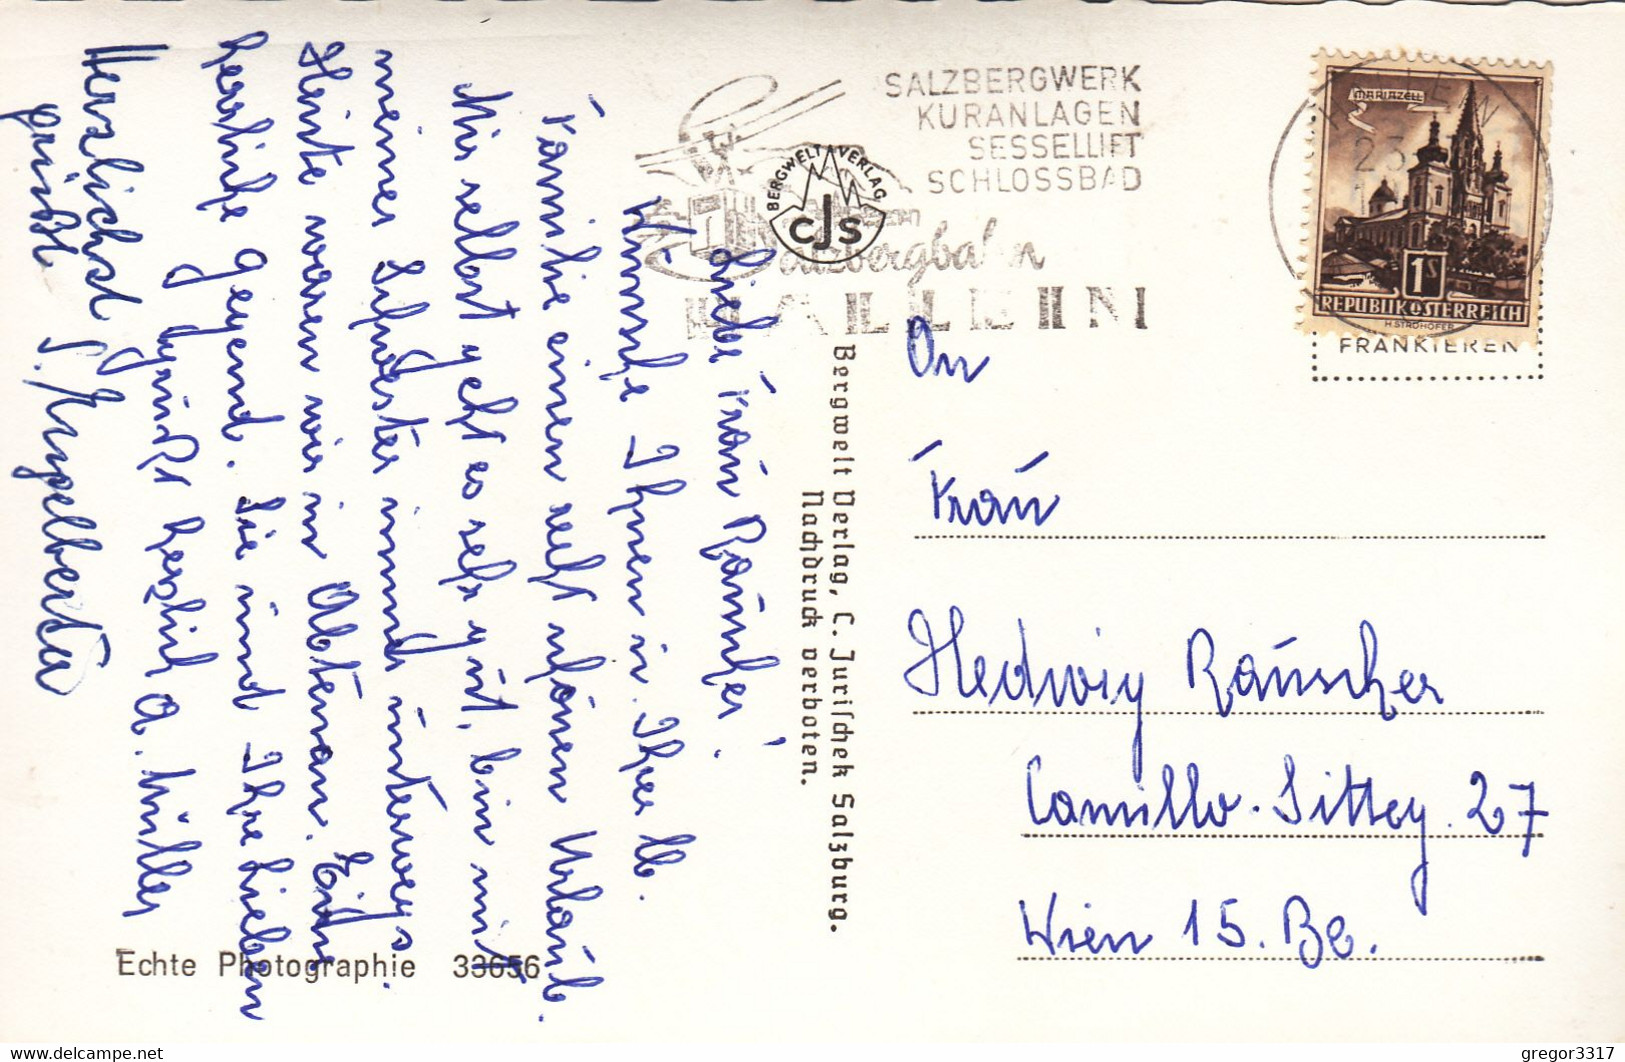 Liebe Frau Rauscher!
Wünsche Ihnen u. Ihrer lb.
Familie einen recht schönen Urlaub.
Mir selbst geht es sehr gut, bin mit
meiner Schwester immer unterwegs.
Heute waren wir in Abtenau. Eine
herrliche Gegend. Sie und Ihre Lieben
grüßt herzlich A. Müller
Herzlichst
grüßt
Echte Photographie 33656
Bergwelt Verlag, C. Jurischek Salzburg.
Nachdruck verboten.
BERGWELT VERLAG
CJS
SALZBERGWERK
KURANLAGEN
SESSELLIFT
SCHLOSSBAD
Salzbergbahn
HALLEIN
MARIAZELL
1S
REPUBLIK ÖSTERREICH
H. STROHOFER
FRANKIEREN
An
Frau
Hedwig Rauscher
Camillo-Sitteg. 27
Wien 15. Be.
delcampe.net
gregor3317